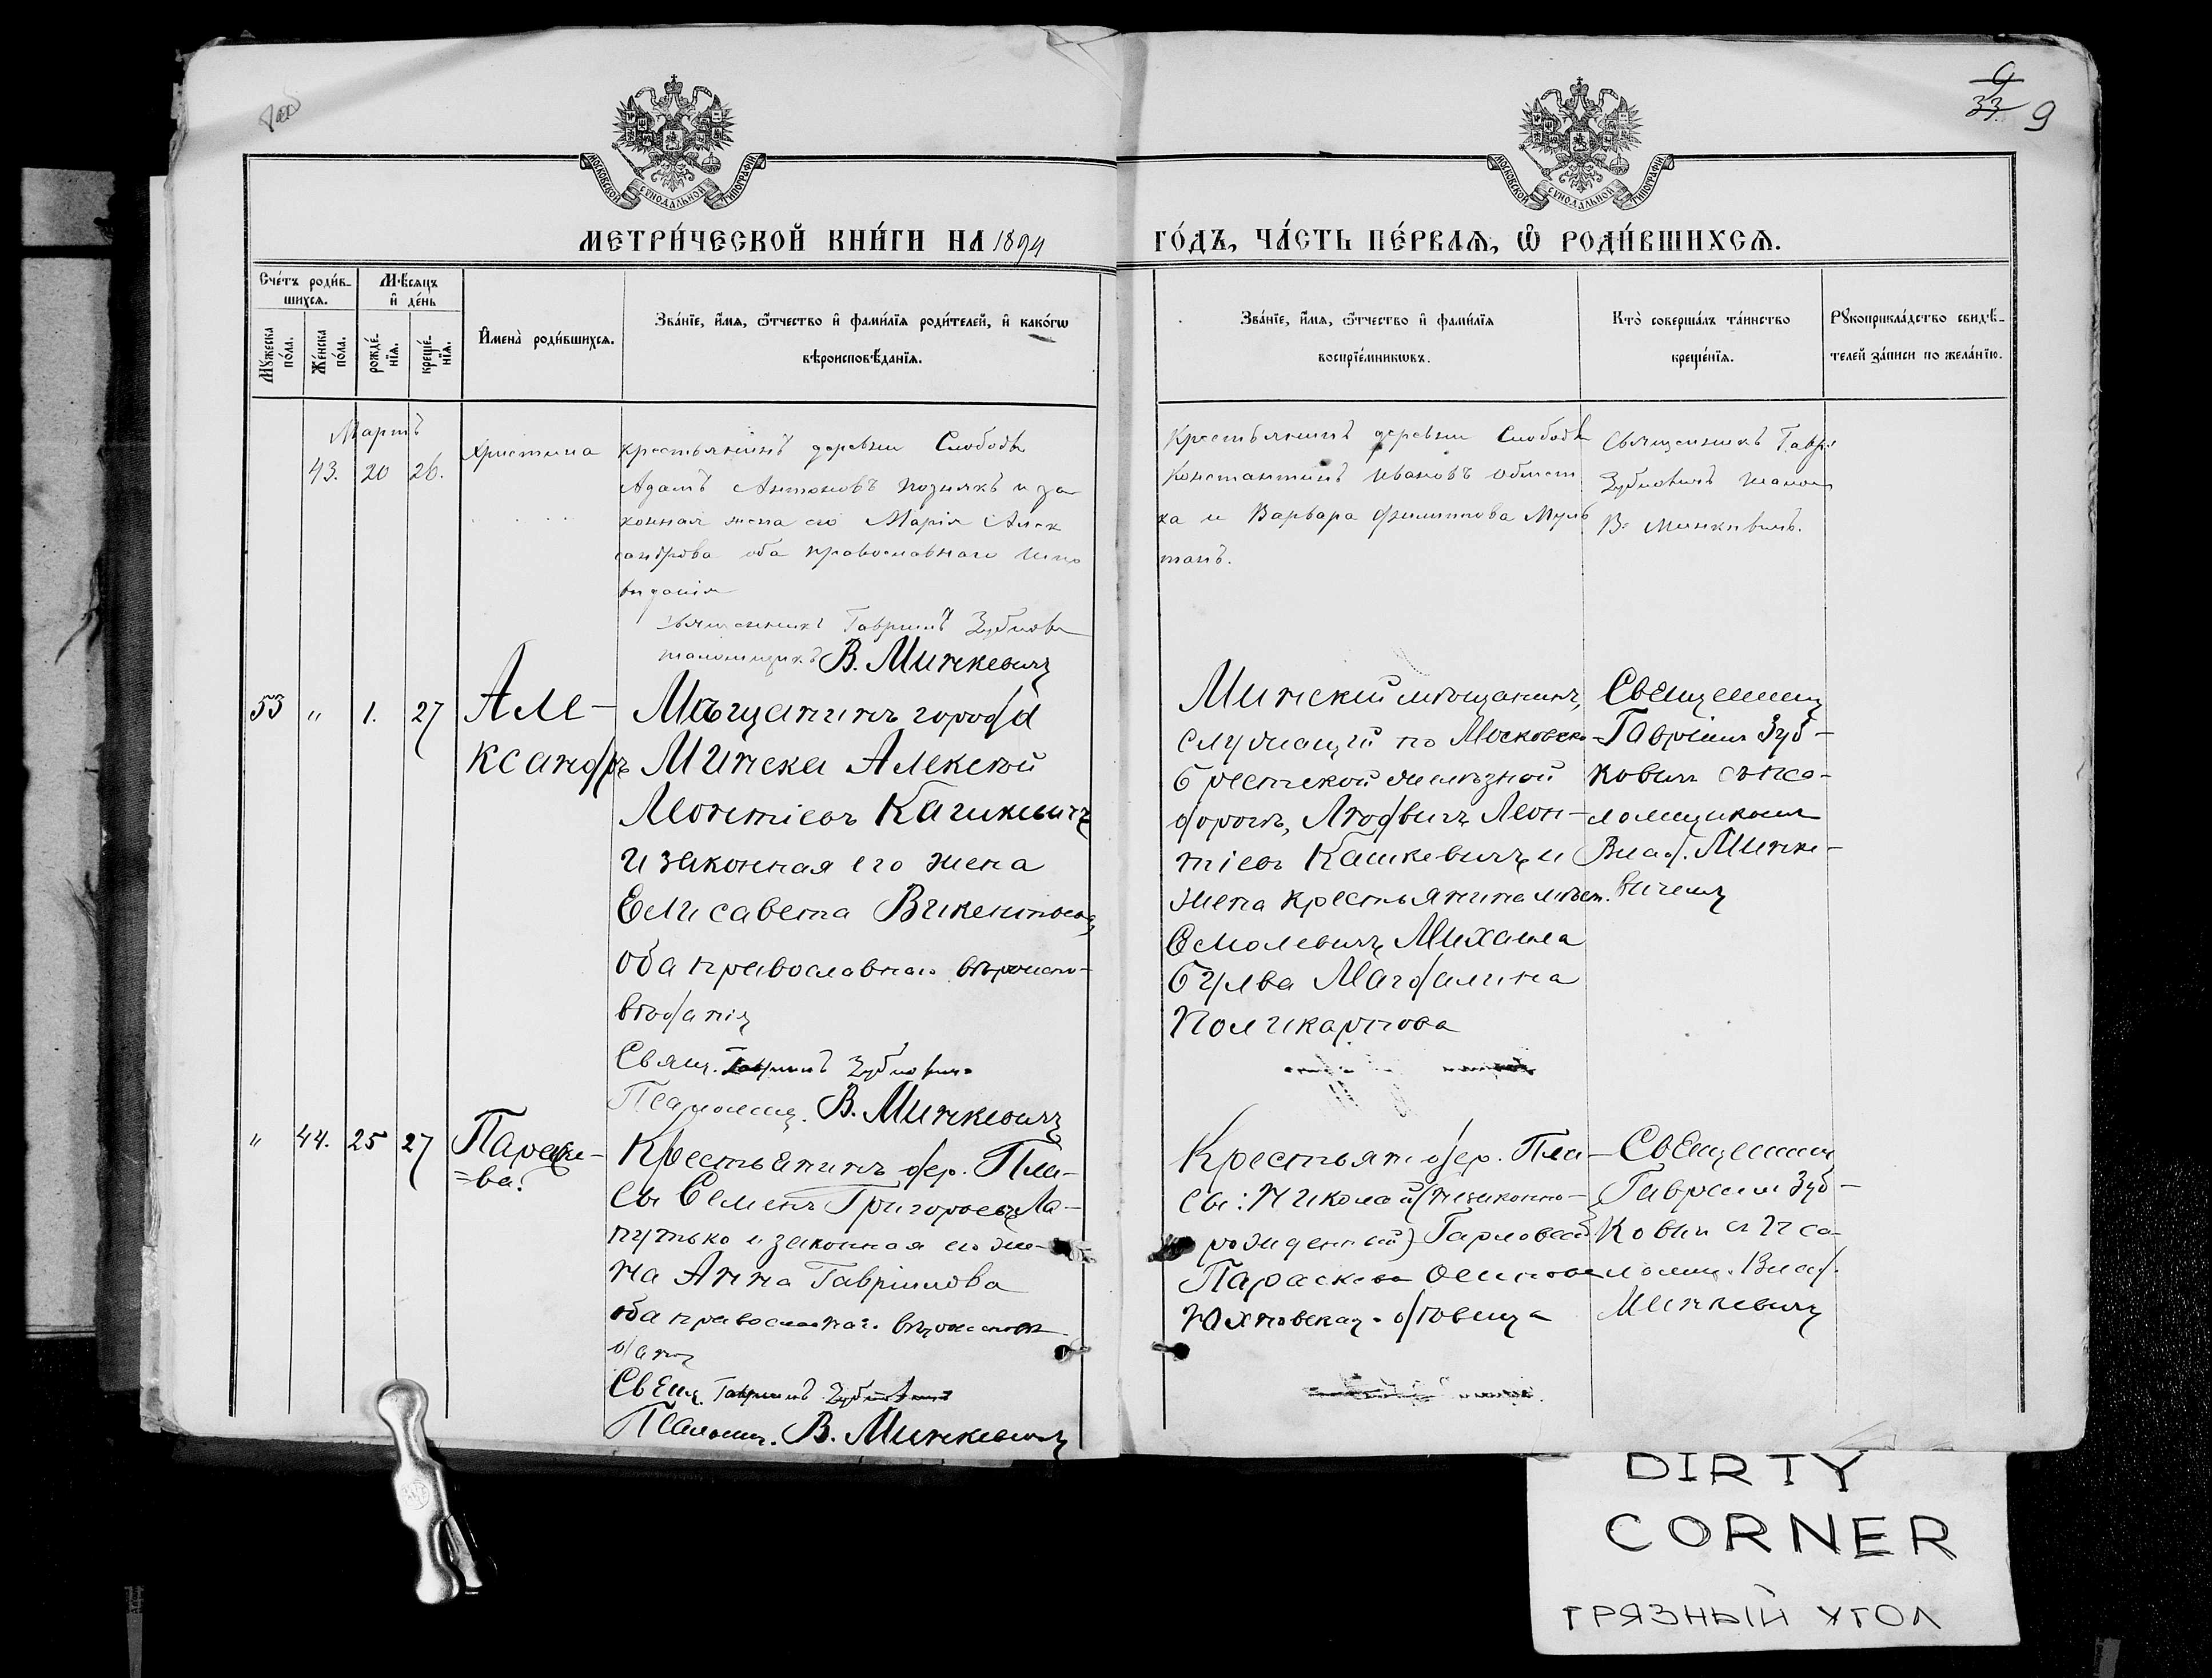 9
33 9
МОСКОВСКОЙ СУНОДАЛЬНОЙ ТИПОГРАФІИ
МОСКОВСКОЙ СУНОДАЛЬНОЙ ТИПОГРАФІИ
МЕТРИ́ЧЕСКОЙ КНИ́ГИ НА 1894
ГО́ДЪ, ЧА́СТЬ ПЕ́РВАѦ, Ѡ҆ РОДИ́ВШИХСѦ.
Сче́тъ роди́в-
шихсѧ.
Мѣ́сѧцъ
и҆ де́нь
Мꙋ́жеска
по́ла.
Же́нска
по́ла.
рожде́-
нїѧ.
креще́-
нїѧ.
И҆мена̀ роди́вшихсѧ.
Зва́нїе, и҆́мѧ, ѻ҆́тчество и҆ фами́лїѧ роди́телей, и҆ како́гѡ
вѣроисповѣ́данїѧ.
Зва́нїе, и҆́мѧ, ѻ҆́тчество и҆ фами́лїѧ
воспрїе́мникѡвъ.
Кто̀ соверша́лъ та́инство
креще́нїѧ.
Рꙋкоприкла́дство свидѣ́-
телей за́писи по жела́нїю.
Мартъ
43. 20 26.
Христина
крестьянинъ деревни Слободы
Адамъ Антоновъ Познякъ и за
конная жена его Марія Алек
сандрова оба православнаго испо
вѣданія
Священникъ Гавріилъ Зубкови
псаломщикъ В. Минкевичъ
Крестьянинъ деревни Слободы
Константинъ Ивановъ
ка и Варвара Филиппова Муль
танъ.
Священникъ Гавр.
Зубковичъ
В. Минкевичъ.
53 " 1. 27
Але-
ксандръ
Мѣщанинъ города
Минска Алексѣй
Леонтіевъ Кашкевичъ
и законная его жена
Елисавета Викентьева,
оба православнаго вѣроиспо-
вѣданія
Свящ. Гавріилъ Зубкович
Псаломщ. В. Минкевичъ
Минскій мѣщанинъ,
служащій по Московско-
Брестской желѣзной
дорогѣ, Людвигъ Леон-
тіев Кашкевичъ и
жена крестьянина мѣст.
Смолевичъ Михаила
Поликарпова
Священник
Гавріилъ Зуб-
ковичъ съ пса-
ломщикомъ
Влад. Минке-
вичемъ
" 44. 25 27
Параске-
=ва.
Крестьянинъ дер. Пли-
сы Семенъ Григорьевъ Ла-
путько и законная его же-
на Анна Гавріилова
оба православнаг. вѣроисповѣ
данія
Свящ. Гавріилъ Зубкович
Псаломщ. В. Минкевичъ
Крестьян. дер. Пли-
сы: Николай (незаконно-
рожденный)
Параскева Осипова
Юхновская дѣвица
Священник
Гавріилъ Зуб-
ковичъ съ Пса-
ломщ. Влад.
Минкевичъ
DIRTY
CORNER
ГРЯЗНЫЙ УГОЛ